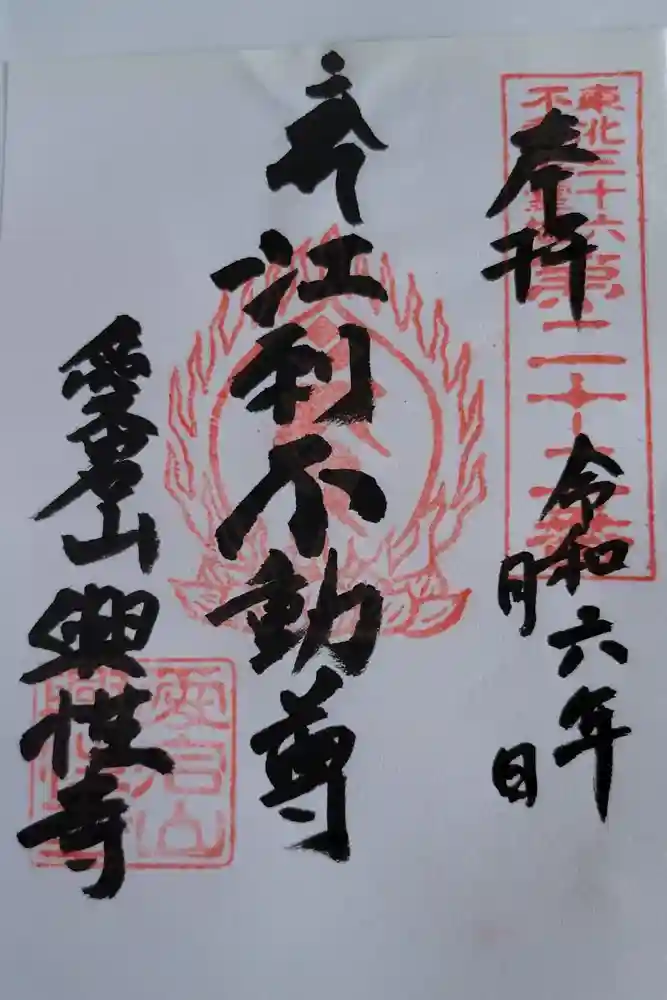 奉拝
東北三十六
不動尊霊場
第二十
令和六年
月 日
江刺不動尊
愛宕山 興性寺
愛宕山
興性寺